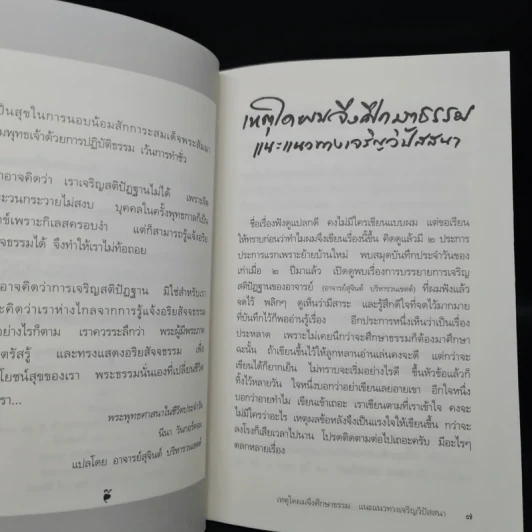 เป็นสุขในการนอบน้อมสักการะสมเด็จพระสัมมา
มพุทธเจ้าด้วยการปฏิบัติธรรม เว้นการทำชั่ว
าอาจคิดว่า เราเจริญสติปัฏฐานไม่ได้ เพราะจิต
ะวนกระวายไม่สงบ บุคคลในครั้งพุทธกาลก็เป็น
เพราะกิเลสครอบงำ แต่ก็สามารถรู้แจ้งอริย
จธรรมได้ จึงทำให้เราไม่ท้อถอย
าอาจคิดว่าการเจริญสติปัฏฐาน มิใช่สำหรับเรา
ะคิดว่าเราห่างไกลจากการรู้แจ้งอริยสัจจธรรม
อย่างไรก็ตาม เราควรระลึกว่า พระผู้มีพระภาค
ตรัสรู้ และทรงแสดงอริยสัจจธรรม เพื่อ
โยชน์สุขของเรา พระธรรมนั่นเองที่เปลี่ยนชีวิต
รา...
พระพุทธศาสนาในชีวิตประจำวัน
นีนา วันกอร์คอม
แปลโดย อาจารย์สุจินต์ บริหารวนเขตต์
เหตุใดผมจึงศึกษาธรรม
แนะแนวทางเจริญวิปัสสนา
ชื่อเรื่องฟังดูแปลกดี คงไม่มีใครเขียนแบบผม แต่ขอเรียน
ให้ทราบก่อนว่าทำไมผมจึงเขียนเรื่องนี้ขึ้น คิดดูแล้วมี ๒ ประการ
ประการแรกเพราะย้ายบ้านใหม่ พบสมุดบันทึกประจำวันของ
เก่าเมื่อ ๒ ปีมาแล้ว เปิดดูพบเรื่องการบรรยายการเจริญ
สติปัฏฐานของอาจารย์ (อาจารย์สุจินต์ บริหารวนเขตต์) ที่ผมฟังแล้ว
จดไว้ พลิกๆ ดูเห็นว่ามีสาระ และรู้สึกดีใจที่จดไว้มากมาย
ที่บันทึกไว้ก็พออ่านรู้เรื่อง อีกประการหนึ่งเห็นว่าเป็นเรื่อง
ประหลาด เพราะไม่เคยนึกว่าจะศึกษาธรรมก็ต้องมาศึกษา
ฉะนั้น ถ้าเขียนขึ้นไว้ให้ลูกหลานอ่านเล่นคงจะดี แต่กว่าจะ
เขียนได้ก็ยากเย็น ไม่ทราบจะเริ่มอย่างไรดี ขึ้นหัวข้อแล้วก็
ทิ้งไว้หลายวัน ใจหนึ่งบอกว่าอย่าเขียนเลยอายเขา อีกใจหนึ่ง
บอกว่าอายทำไม เขียนเข้าเถอะ เราเขียนตามที่เราเข้าใจ คงจะ
ไม่มีใครว่าอะไร เหตุผลข้อหลังจึงเป็นแรงใจให้เขียนขึ้น กว่าจะ
ลงโรงก็เสียเวลาไปนาน โปรดติดตามต่อไปเถอะครับ มีอะไรๆ
ตลกหลายเรื่อง
เหตุใดผมจึงศึกษาธรรม แนะแนวทางเจริญวิปัสสนา
๗